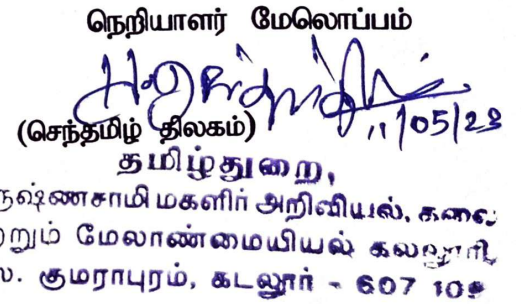 நெறியாளர் மேலொப்பம்
11/05/23
(செந்தமிழ் திலகம்)
தமிழ்துறை,
ருஷ்ணசாமி மகளிர் அறிவியல், கலை
ற்றும் மேலாண்மையியல் கல்லூரி
குமராபுரம், கடலூர் - 607 109